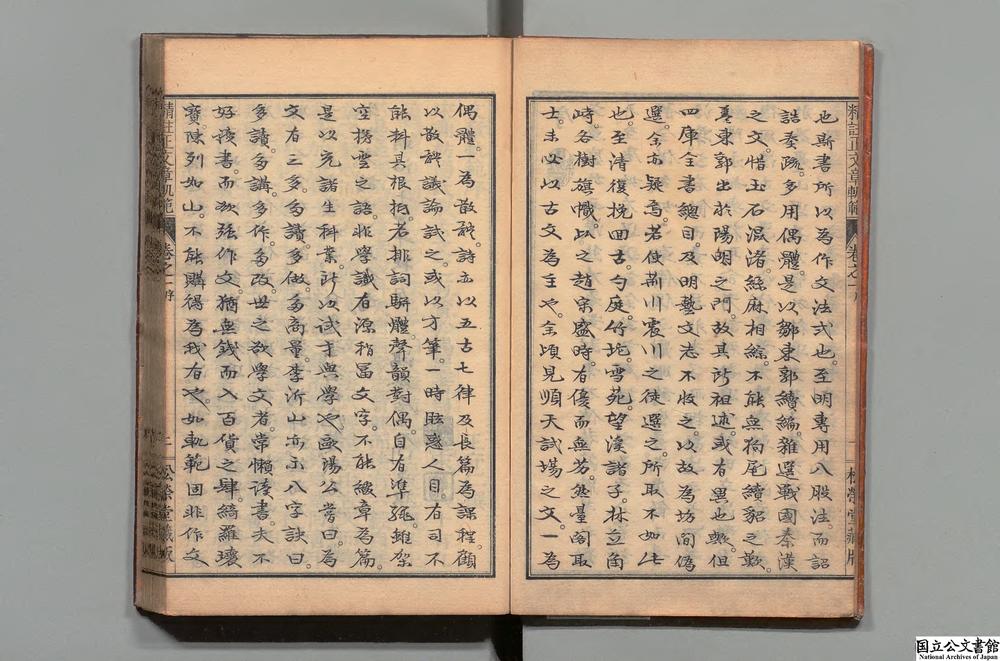 也斯書所以為作文法式也。至明專用八股法。而詔
誥奏疏。多用偶體。是以鄒東郭續編。雜選戰國秦漢
之文。惜玉石混淆。絲麻相綜。不能無狗尾續貂之歎。
盖東郭出於陽明之門。故其所祖述。或有異也歟。但
四庫全書總目。及明藝文志不收之。以故為坊間偽
選。余亦疑焉。若使荊川震川之徒選之。所取不如此
也。至清復挽回古。勺庭。竹垞。雪苑。望溪諸子。林立角
峙。各樹旗幟。以之趙宋盛時。有優而無劣。然臺閣取
士。未必以古文為主也。余頃見順天試場之文。一為
偶體。一為散體。詩亦以五古七律及長篇為課程。顧
以散體議論試之。或以方筆。一時眩惑人目。有司不
能料其根柢。若排詞駢體。聲韻對偶。自有準繩。雖架
空撈雲之語。非學識有源稍冨文字。不能綴章為篇。
是以充諸生科業。所以試才與學也。歐陽公嘗曰。為
文有三多。多讀。多做。多商量。李沂山亦示八字訣曰。
多讀。多講。多作。多改。世之欲學文者。常懶讀書。夫不
好讀書。而欲強作文。猶無錢而入百貨之肆。綺羅瓌
寶。陳列如山。不能購得為我有也。如軌範固非作文
精註正文章軌範
卷之一序
松榮堂藏版
精註正文章軌範
卷之一序
二
松榮堂藏版
国立公文書館
National Archives of Japan